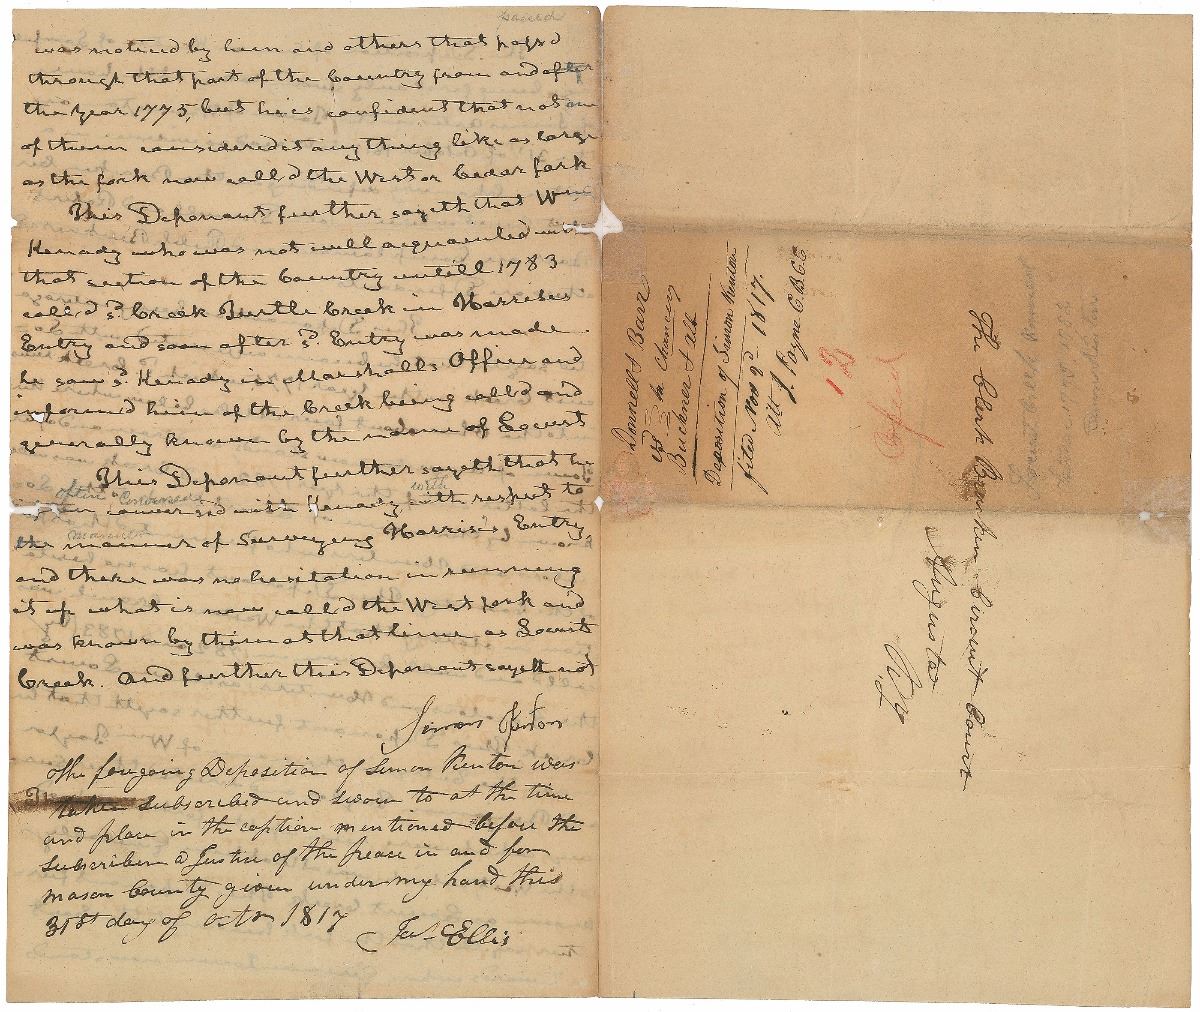 was noticed by him and others that pass'd
through that part of the Country from and after
the year 1775, but he is confident that not one
of them considered it any thing like as large
as the fork now call'd the West or Cedar fork
This Deponant further sayeth that Wm
Kenady who was not well acquainted with
that section of the Country untill 1783
call'd sd. Creek Turtle Creek in Harrises
Entry and soon after sd. Entry was made
he saw sd. Kenady in Marshalls Office and
informd him of the Creek being call'd and
generally known by the name of Locust
This Deponant further sayeth that he
often conversed with
convers'd with Kenady with respect to
manner
the manner of Surveying Harrises Entry,
and there was no hesitation in running
it up what is now call'd the West fork and
was known by them at that time as Locust
Creek. And further this Deponant sayeth not
Simon Kenton
The foregoing Deposition of Simon Kenton was
taken subscribed and sworn to at the time
and place in the caption mentioned before the
subscriber a Justice of the peace in and for
Mason County given under my hand this
31st day of Octr 1817
Jas. Ellis
Donnell & Barr
vs In Chancery
Buckner & als
Deposition of Simon Kenton
filed Nov 9th 1817.
Att J. Payne C.B.C.C.
13
The Clerk Bracken Circuit Court
Augusta
Ky